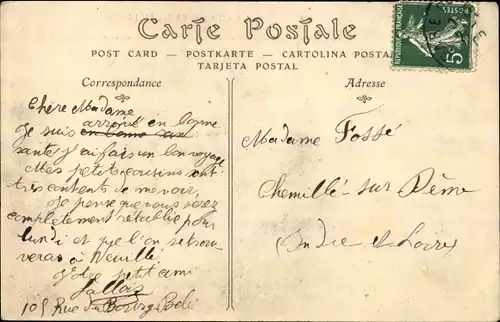 Carte Postale
POST CARD — POSTKARTE — CARTOLINA POSTALE
TARJETA POSTAL
Correspondance
Adresse
REPUBLIQUE FRANÇAISE
POSTES
5c
Chère Madame
Je suis arrivé en bonne
santé j'ai fais un bon voyage
Mes petits cousins sont
très contents de me voir,
Je pense que vous serez
complètement rétablie pour
lundi et que l'on se trou
veras à Neuillé
Votre petit ami
105 Rue du
Madame Fossé
Chemillé-sur-Dême
Indre et Loire